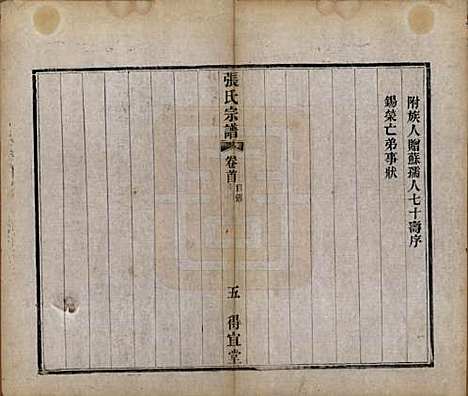 附族人贈蘇孺人七十壽序
錫榮亡弟事狀
張氏宗譜
卷首
目錄
五
得宜堂